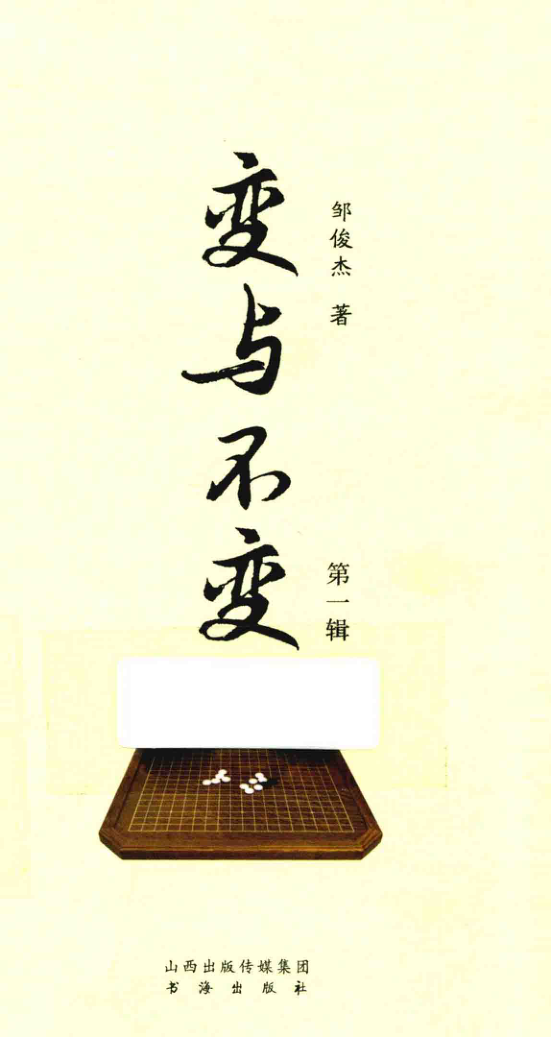 变与不变
邹俊杰 著
第一辑
山西出版传媒集团
书海出版社